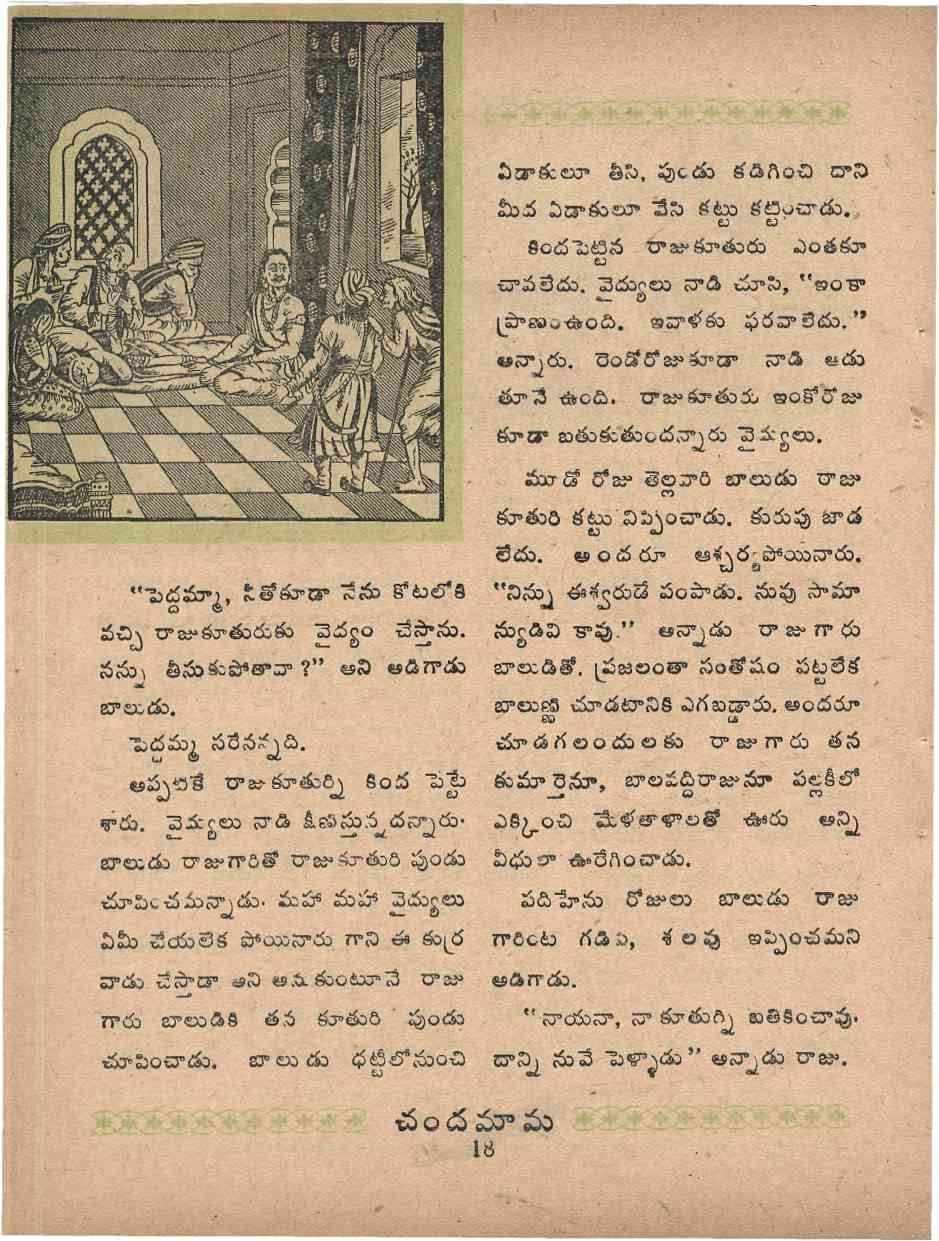 "పెద్దమ్మా, నీతోకూడా నేను కోటలోకి
వచ్చి రాజుకూతురుకు వైద్యం చేస్తాను.
నన్ను తీసుకుపోతావా?" అని అడిగాడు
బాలుడు.
పెద్దమ్మ సరేనన్నది.
అప్పటికే రాజుకూతుర్ని కింద పెట్టే
శారు. వైద్యులు నాడి క్షీణిస్తున్నదన్నారు.
బాలుడు రాజుగారితో రాజుకూతురి పుండు
చూపించమన్నాడు. మహా మహా వైద్యులు
ఏమీ చేయలేక పోయినారు గాని ఈ కుర్ర
వాడు చేస్తాడా అని అనుకుంటూనే రాజు
గారు బాలుడికి తన కూతురి పుండు
చూపించాడు. బాలుడు ధట్టీలోనుంచి
ఏడాకులూ తీసి, పుండు కడిగించి దాని
మీద ఏడాకులూ వేసి కట్టు కట్టించాడు.
కిందపెట్టిన రాజుకూతురు ఎంతకూ
చావలేదు. వైద్యులు నాడి చూసి, "ఇంకా
ప్రాణంఉంది. ఇవాళకు ఫరవాలేదు."
అన్నారు. రెండోరోజుకూడా నాడి ఆడు
తూనే ఉంది. రాజుకూతురు ఇంకోరోజు
కూడా బతుకుతుందన్నారు వైద్యులు.
మూడో రోజు తెల్లవారి బాలుడు రాజు
కూతురి కట్టు విప్పించాడు. కురుపు జాడ
లేదు. అందరూ ఆశ్చర్యపోయినారు.
"నిన్ను ఈశ్వరుడే పంపాడు. నువు సామా
న్యుడివి కావు." అన్నాడు రాజుగారు
బాలుడితో. ప్రజలంతా సంతోషం పట్టలేక
బాలుణ్ణి చూడటానికి ఎగబడ్డారు. అందరూ
చూడగలందులకు రాజుగారు తన
కుమార్తెనూ, బాలవద్దిరాజునూ పల్లకీలో
ఎక్కించి మేళతాళాలతో ఊరు అన్ని
వీధులా ఊరేగించాడు.
పదిహేను రోజులు బాలుడు రాజు
గారింట గడిపి, శలవు ఇప్పించమని
అడిగాడు.
"నాయనా, నా కూతుర్ని బతికించావు.
దాన్ని నువే పెళ్ళాడు" అన్నాడు రాజు.
చందమామ
18